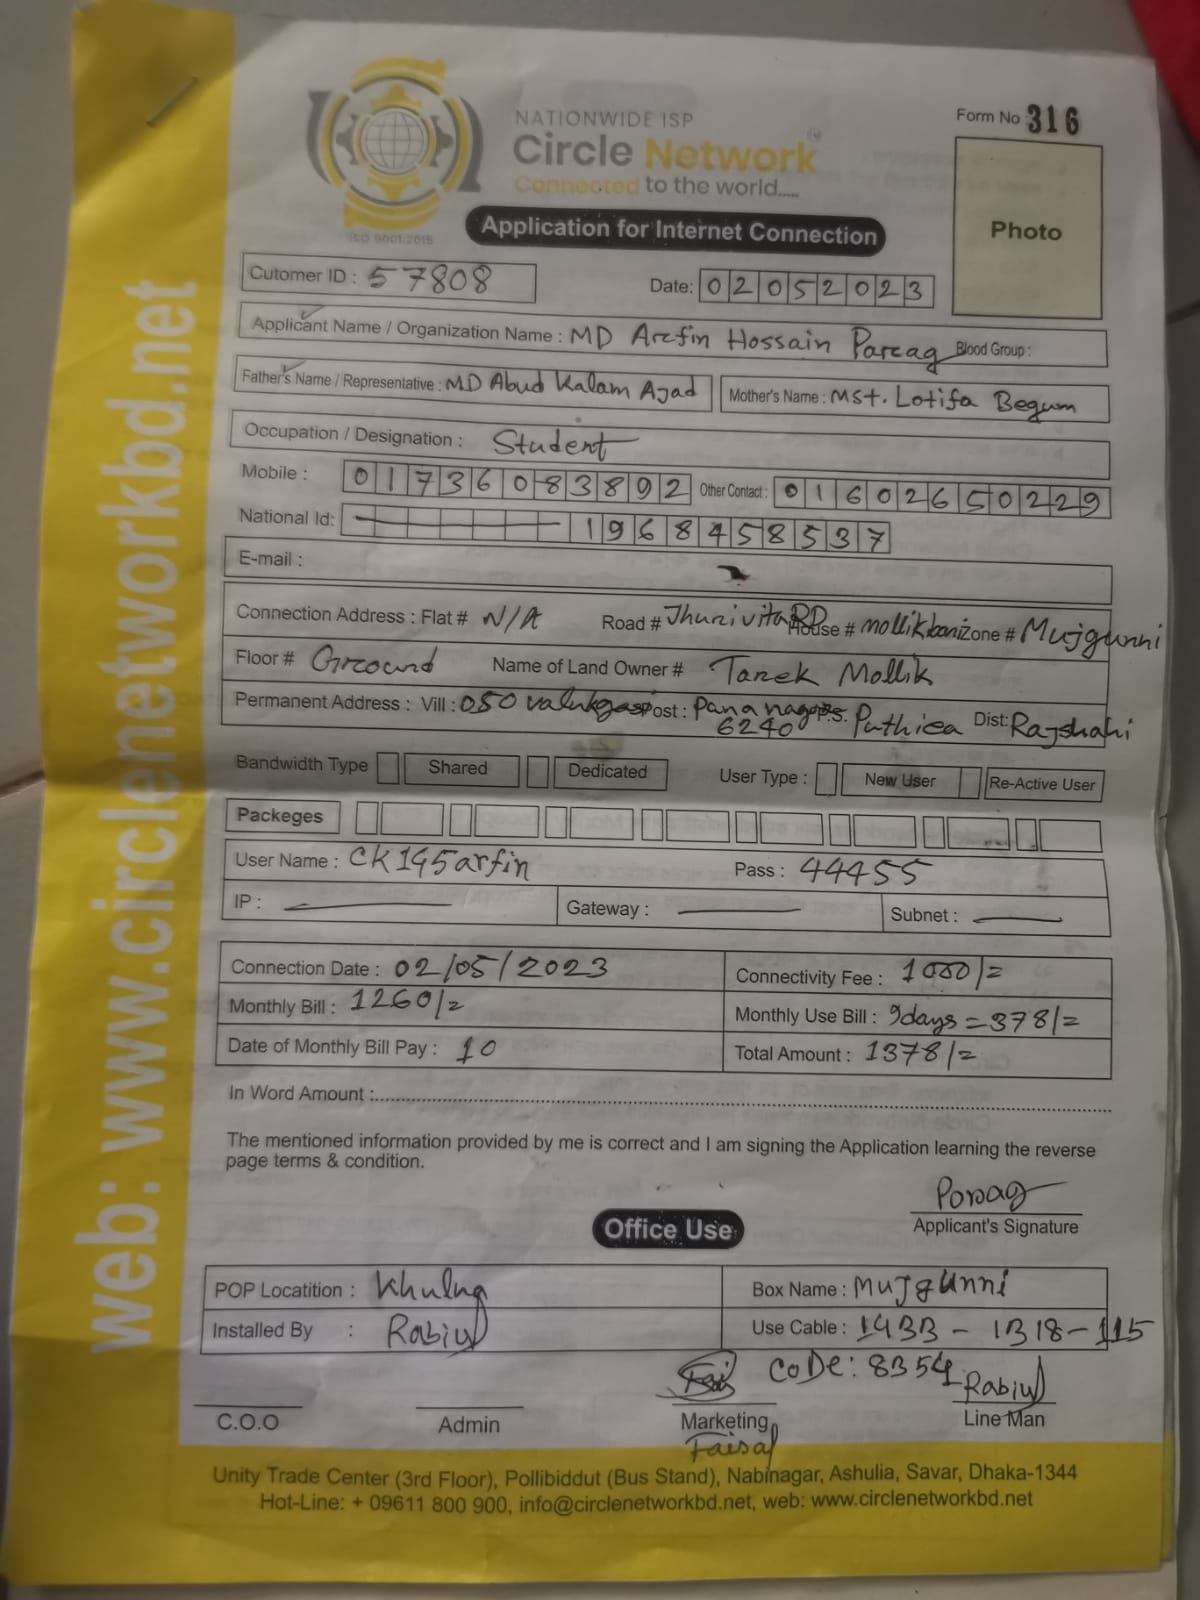 NATIONWIDE ISP
Circle Network
Connected to the world.....
ISO 9001:2015
Form No 316
Photo
Application for Internet Connection
web: www.circlenetworkbd.net
Cutomer ID : 57808 Date: 02052023
Applicant Name / Organization Name : MD Arefin Hossain Parag Blood Group :
Father's Name / Representative : MD Abud Kalam Ajad Mother's Name : Mst. Lotifa Begum
Occupation / Designation : Student
Mobile : 01736083892 Other Contact : 01602650229
National Id: 1968458537
E-mail :
Connection Address : Flat # N/A Road # Jhurivita RD House # mollikbari zone # Mujgunni
Floor # Ground Name of Land Owner # Tarek Mollik
Permanent Address : Vill : Post : 6240 P.S. Puthiea Dist: Rajshahi
Bandwidth Type Shared Dedicated User Type : New User Re-Active User
Packeges
User Name : CK195arfin Pass : 44455
IP : Gateway : Subnet :
Connection Date : 02/05/2023 Connectivity Fee : 1000/=
Monthly Bill : 1260/= Monthly Use Bill : 9days = 378/=
Date of Monthly Bill Pay : 10 Total Amount : 1378/=
In Word Amount :
The mentioned information provided by me is correct and I am signing the Application learning the reverse
page terms & condition.
Porag
Applicant's Signature
Office Use
POP Locatition : Khulna Box Name : Mujgunni
Installed By : Rabiul Use Cable : 14BB - 1B18-115
CoDe: 8354 Rabiul
C.O.O Admin Marketing Line Man
Faisal
Unity Trade Center (3rd Floor), Pollibiddut (Bus Stand), Nabinagar, Ashulia, Savar, Dhaka-1344
Hot-Line: + 09611 800 900, info@circlenetworkbd.net, web: www.circlenetworkbd.net